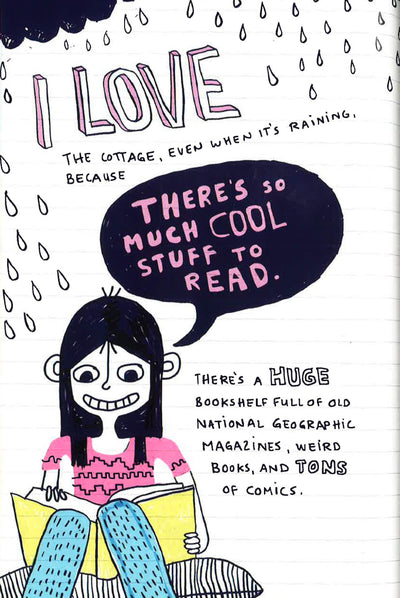 I LOVE
THE COTTAGE, EVEN WHEN IT'S RAINING,
BECAUSE
THERE'S SO
MUCH COOL
STUFF TO
READ.
THERE'S A HUGE
BOOKSHELF FULL OF OLD
NATIONAL GEOGRAPHIC
MAGAZINES, WEIRD
BOOKS, AND TONS
OF COMICS.